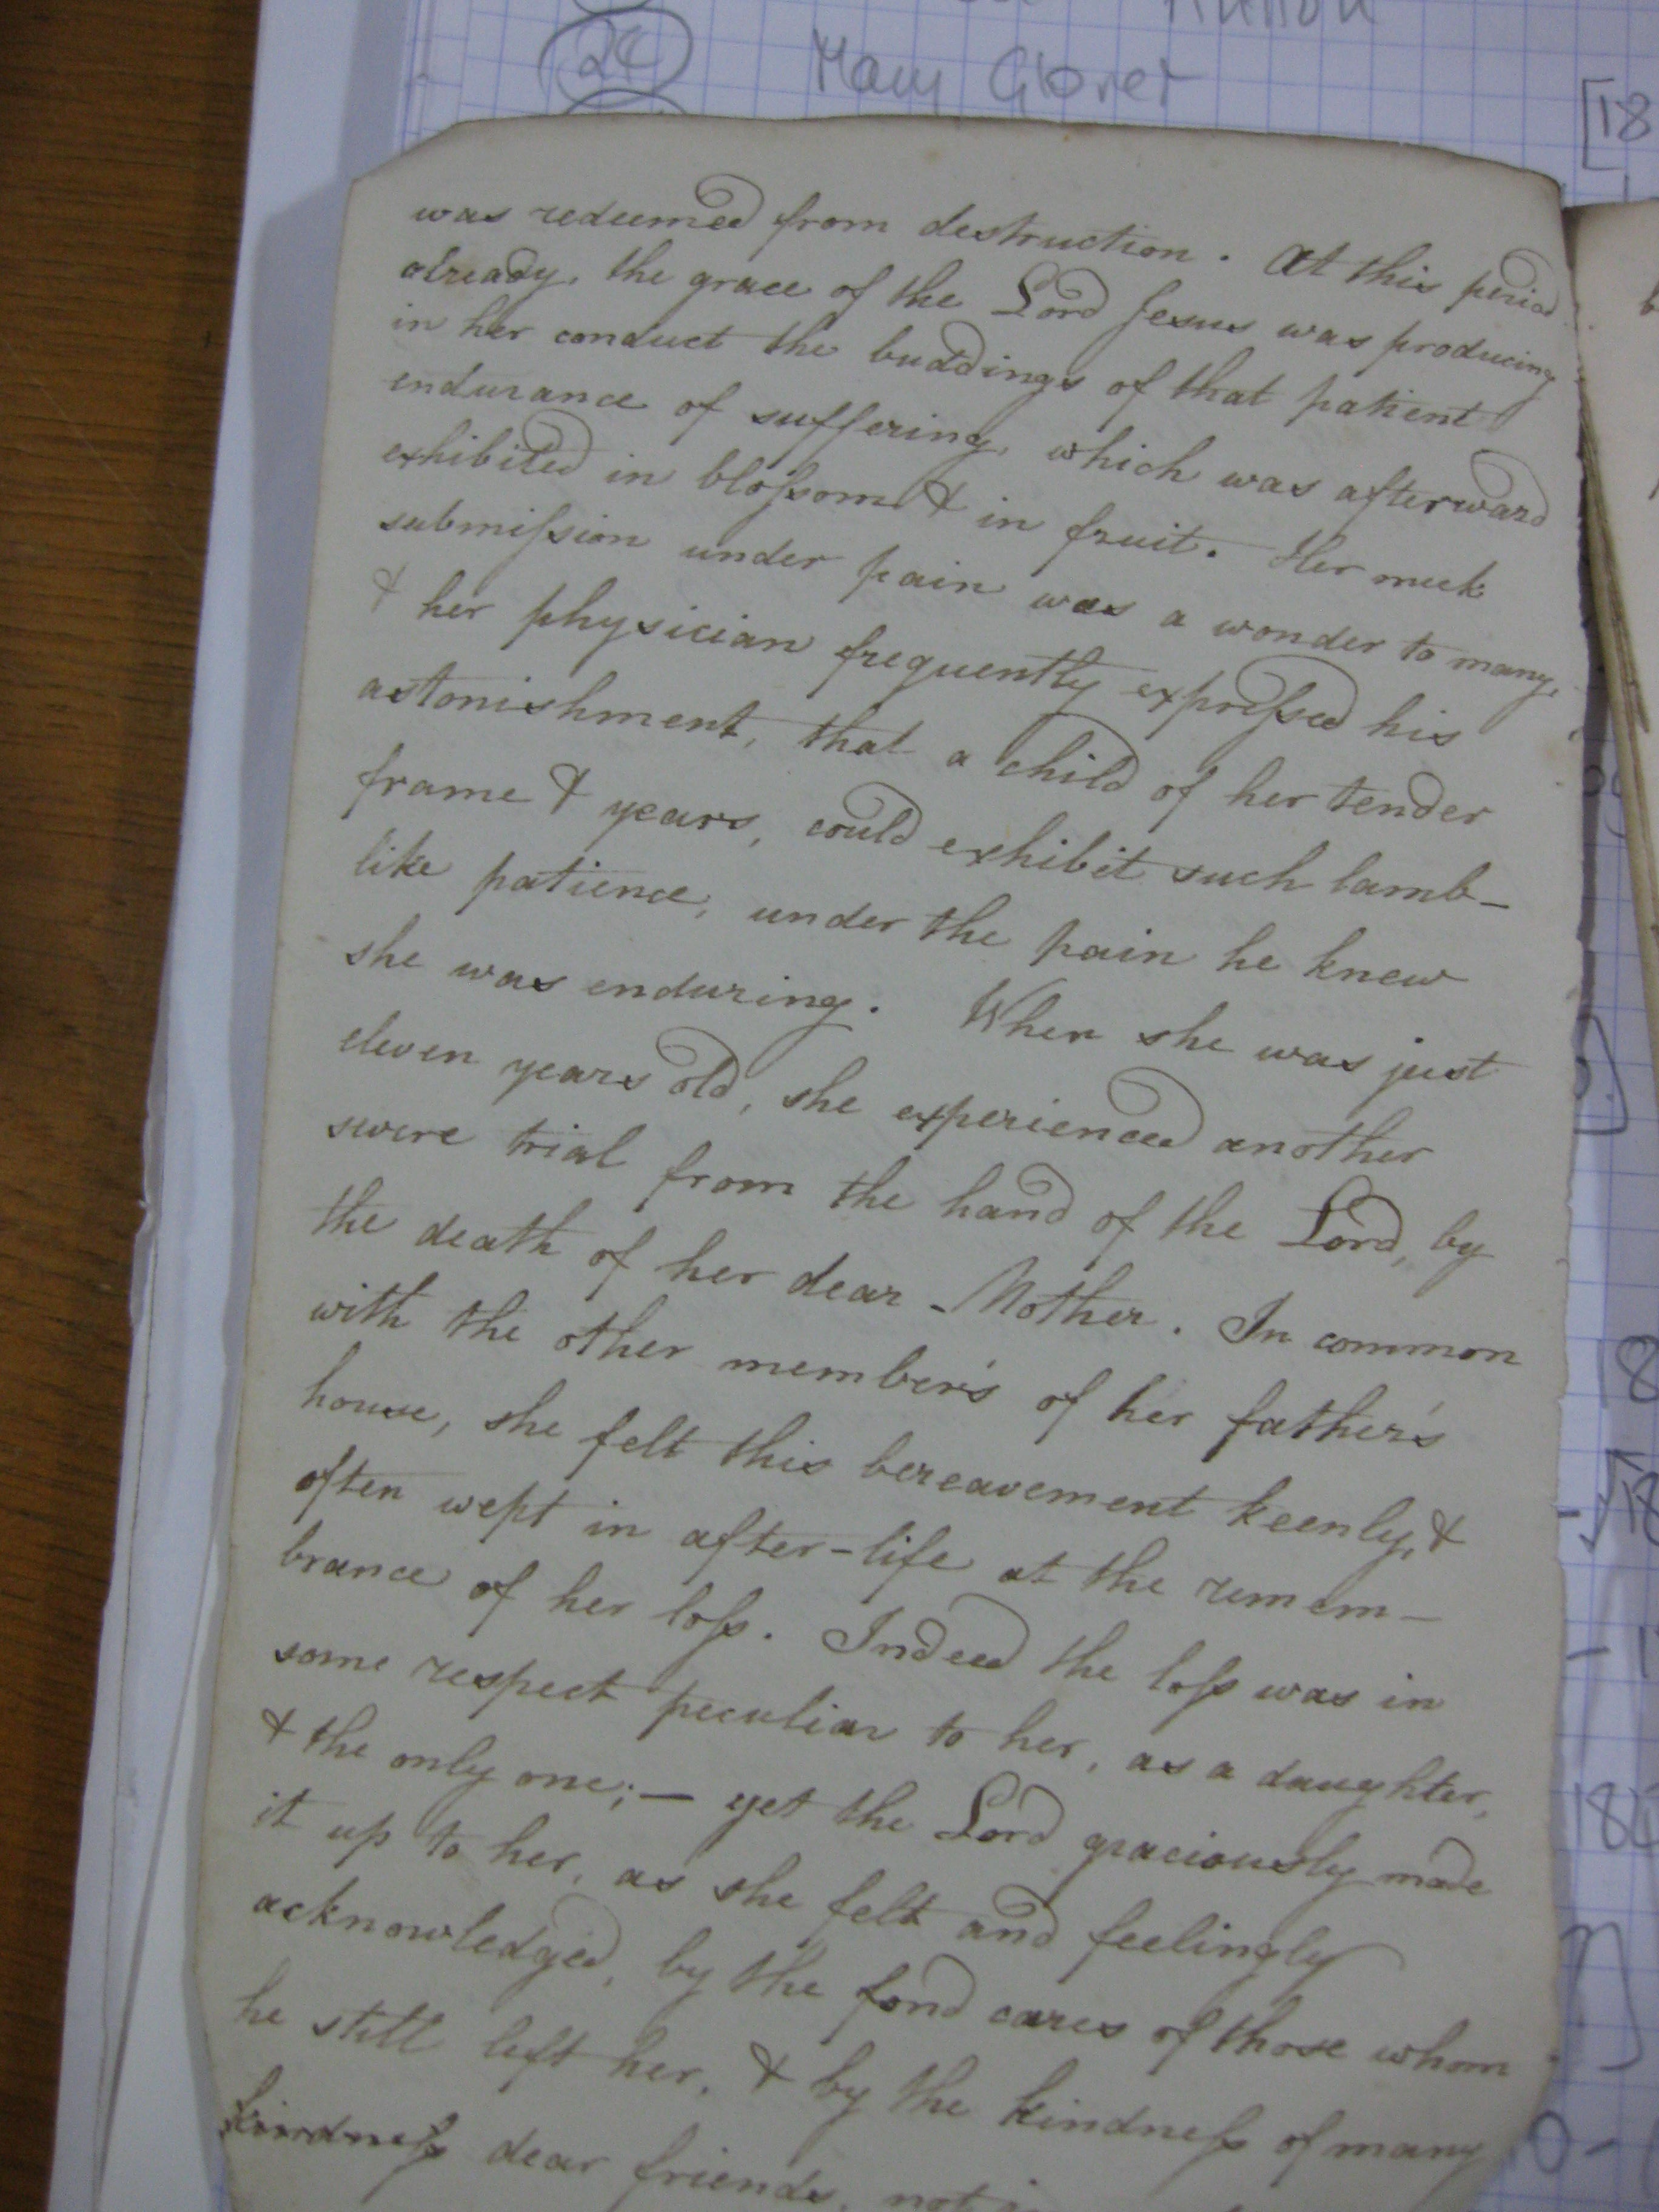 24
Mary
[18
was redeemed from destruction. At this period
already, the grace of the Lord Jesus was producing
in her conduct the buddings of that patient
endurance of suffering, which was afterward
exhibited in bloſsom & in fruit. Her meek
submiſsion under pain was a wonder to many,
& her physician frequently expreſsed his
astonishment, that a child of her tender
frame & years, could exhibit such lamb-
like patience, under the pain he knew
she was enduring. When she was just
eleven years old, she experienced another
severe trial from the hand of the Lord, by
the death of her dear Mother. In common
with the other member's of her father's
house, she felt this bereavement keenly, &
often wept in after-life at the remem-
brance of her loſs. Indeed the loſs was in
some respect peculiar to her, as a daughter,
& the only one; — yet the Lord graciously made
it up to her, as she felt and feelingly
acknowledged, by the fond cares of those whom
he still left her, & by the kindneſs of many
kindneſs dear friends, not